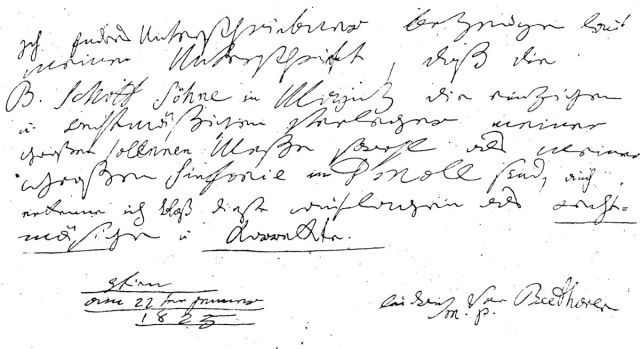 Ich Endes Unterschriebener bezeuge laut
meiner Unterschrift, daß die
B. Schott Söhne in Mainz die einzigen
u rechtmäßigen Verleger meiner
großen solennen Meße sowohl als meiner
großen Sinfonie in D moll sind, auch
erkenne ich bloß diese Auflagen als recht-
mäßige u Korrekte.
Wien
am 22ten jenner
1825
ludwig van Beethoven
m. p.